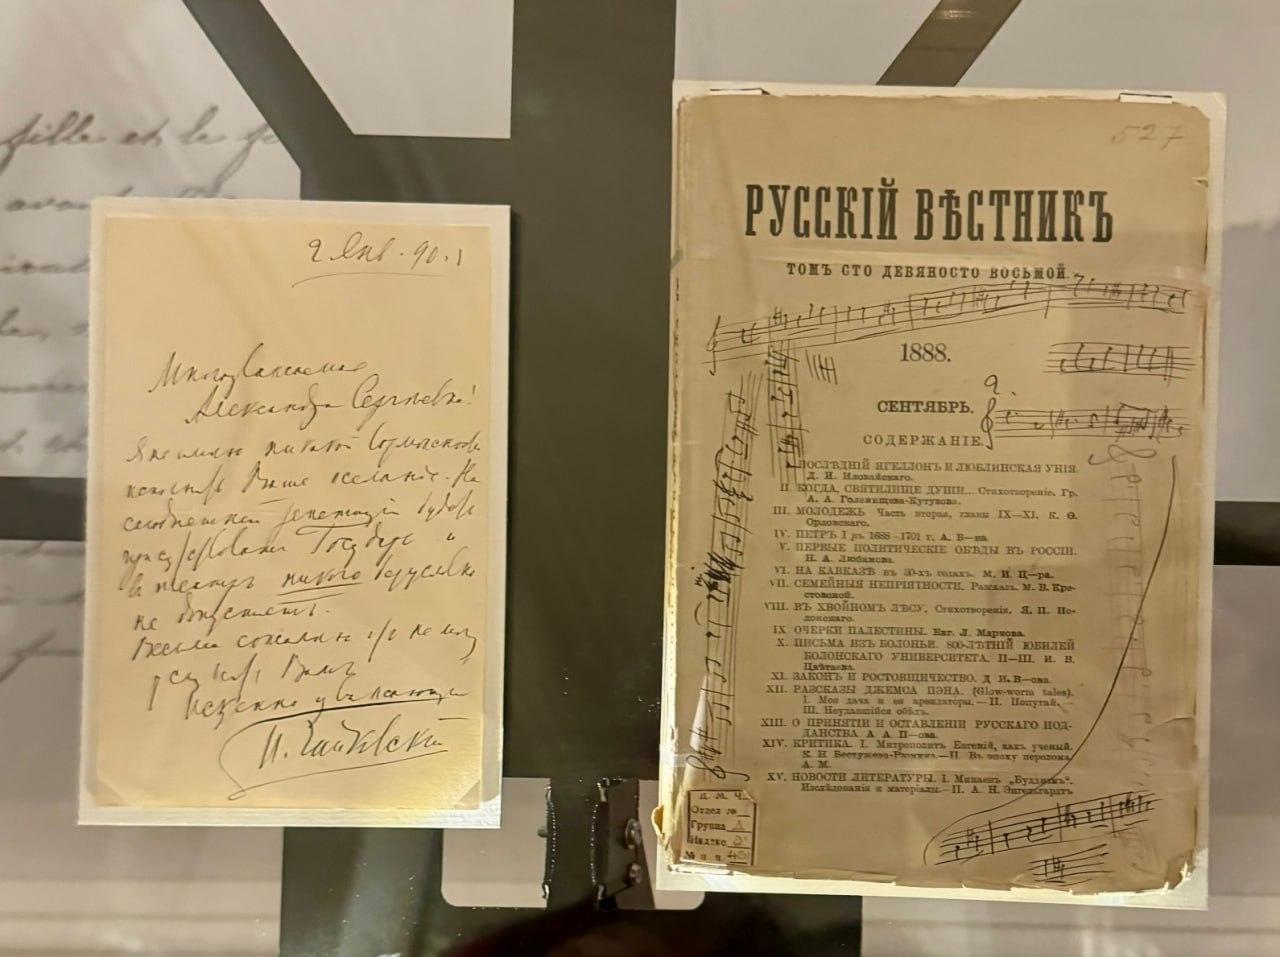 fille et le
2 Янв. 90 г.
Многоуважаемая
Александра Сергѣевна!
Я не имѣю никакой возможности
исполнить Ваше желаніе. На
сегодняшней репетиціи будетъ
присутствовать Государь и
въ театръ никого
не допустятъ.
Весьма сожалѣю что не могу
Вамъ
Искренно уважающій
П. Чайковскій
527
РУССКІЙ ВѢСТНИКЪ
ТОМЪ СТО ДЕВЯНОСТО ВОСЬМОЙ.
1888.
СЕНТЯБРЬ.
СОДЕРЖАНІЕ.
ПОСЛѢДНІЙ ЯГЕЛЛОНЪ И ЛЮБЛИНСКАЯ УНІЯ.
Д. И. Иловайскаго.
II. КОГДА, СВЯТИЛИЩЕ ДУШИ... Стихотвореніе. Гр.
А. А. Голенищева-Кутузова.
III. МОЛОДЕЖЬ Часть вторая, главы IX—XI. К. Ѳ.
Орловскаго.
IV. ПЕТРЪ I въ 1688—1701 г. А. Б—на
V. ПЕРВЫЕ ПОЛИТИЧЕСКІЕ ОБѢДЫ ВЪ РОССІИ.
Н. А. Любимова.
VI. НА КАВКАЗѢ въ 30-хъ годахъ. М. И. Ц—ра.
VII. СЕМЕЙНЫЯ НЕПРІЯТНОСТИ. Разсказъ. М. В. Кре-
стовской.
VIII. ВЪ ХВОЙНОМЪ ЛѢСУ. Стихотвореніе. Я. П. По-
лонскаго.
IX ОЧЕРКИ ПАЛЕСТИНЫ. Евг. Л. Маркова.
X. ПИСЬМА ИЗЪ БОЛОНЬИ. 800-ЛѢТНІЙ ЮБИЛЕЙ
БОЛОНСКАГО УНИВЕРСИТЕТА. II—III. И. В.
Цвѣтаева.
XI. ЗАКОНЪ И РОСТОВЩИЧЕСТВО. Д И. В—ова.
XII. РАЗСКАЗЫ ДЖЕМСА ПЭНА. (Glow-worm tales).
I. Моя дача и ея арендаторы.—II. Попугай.—
III. Неудавшійся обѣдъ.
XIII. О ПРИНЯТІИ И ОСТАВЛЕНІИ РУССКАГО ПОД-
ДАНСТВА. А А. П—ова.
XIV. КРИТИКА. I. Митрополитъ Евгеній, какъ ученый.
К. Н Бестужева-Рюмина.—II. Въ эпоху перелома.
А. М.
XV. НОВОСТИ ЛИТЕРАТУРЫ. I. Минаевъ „Буддизмъ“.
Изслѣдованія и матеріалы.—II. А. Н. Энгельгардтъ
Д. М. Ч.
Отдел №
Группа
Индекс